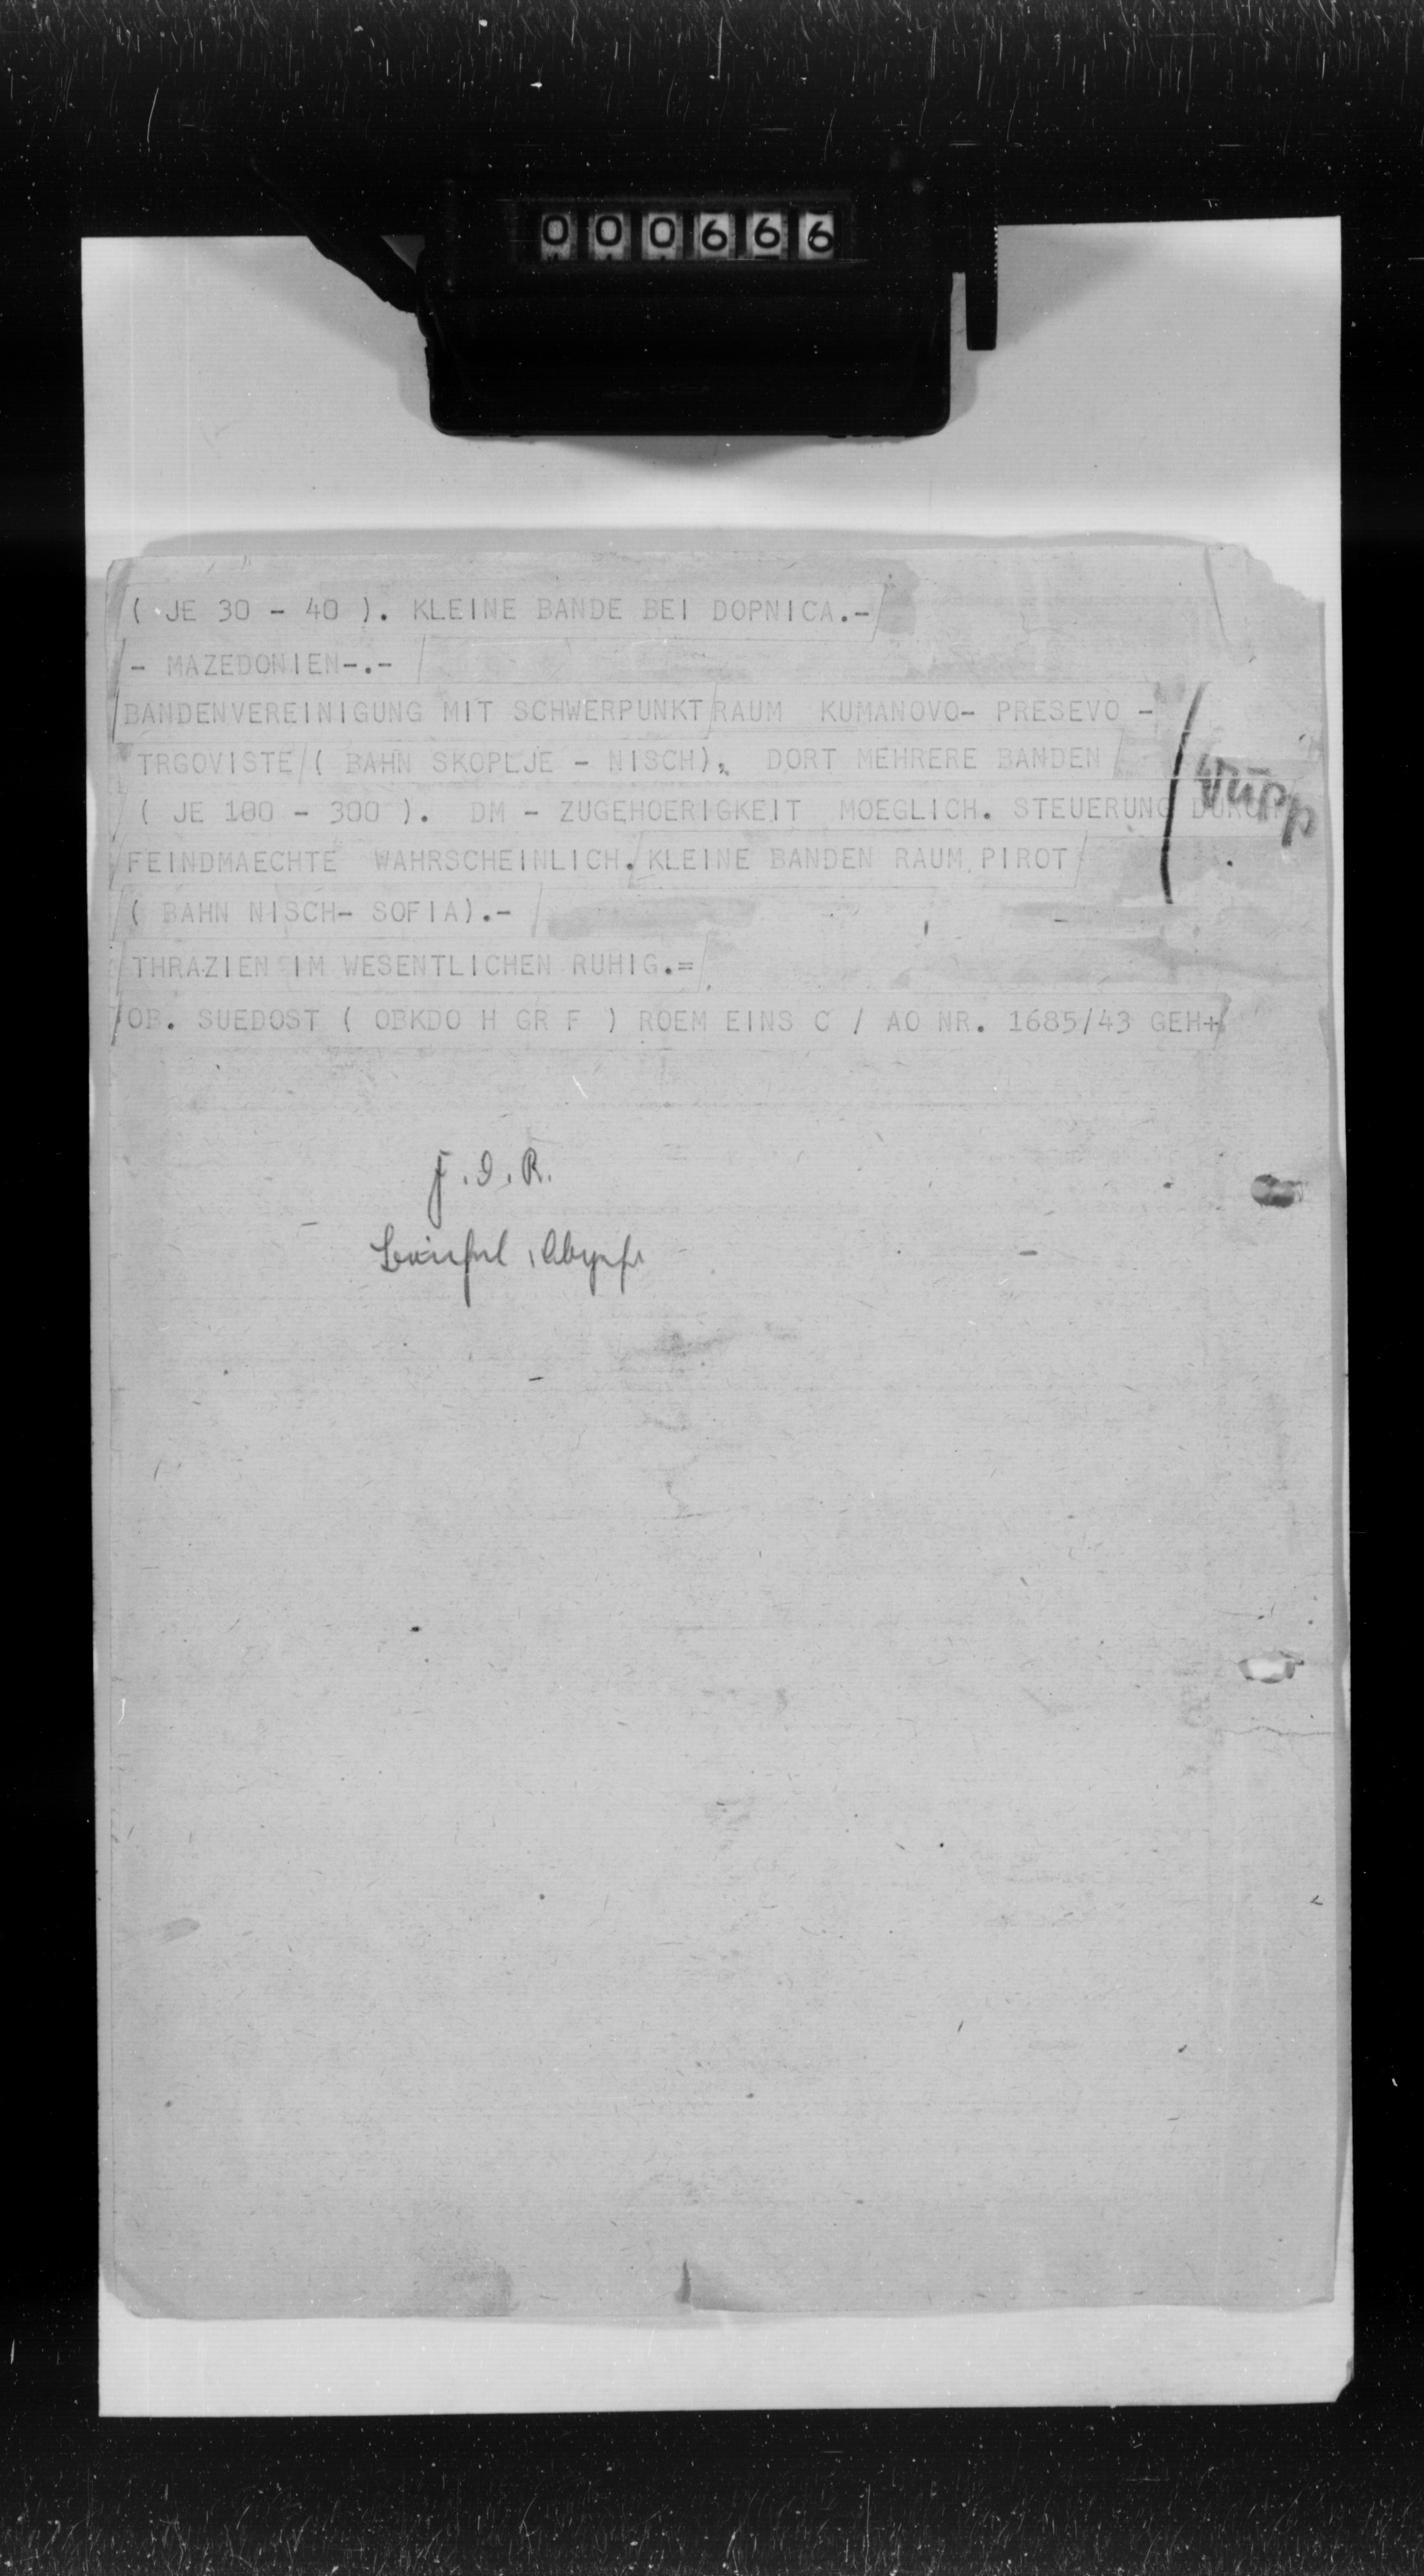 000666
( JE 30 - 40 ). KLEINE BANDE BEI DOPNICA.-
- MAZEDONIEN-.-
BANDENVEREINIGUNG MIT SCHWERPUNKT RAUM KUMANOVO- PRESEVO -
TRGOVISTE ( BAHN SKOPLJE - NISCH), DORT MEHRERE BANDEN
( JE 100 - 300 ). DM - ZUGEHOERIGKEIT MOEGLICH. STEUERUNG DURCH
FEINDMAECHTE WAHRSCHEINLICH. KLEINE BANDEN RAUM PIROT
( BAHN NISCH- SOFIA).-
THRAZIEN IM WESENTLICHEN RUHIG.=
OB. SUEDOST ( OBKDO H GR F ) ROEM EINS C / AO NR. 1685/43 GEH+
F.d.R.